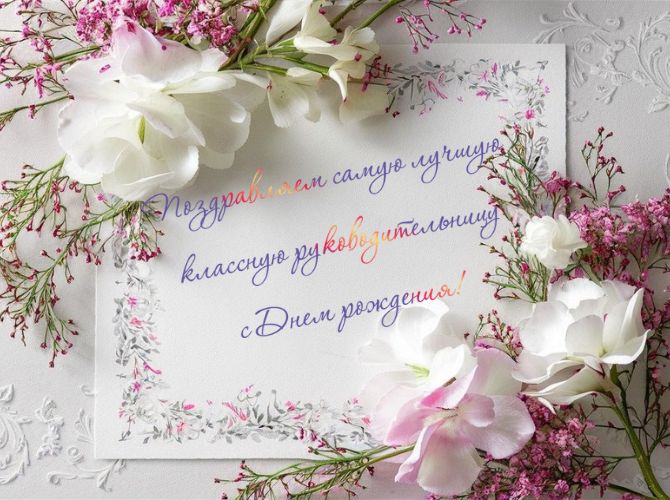 Поздравляем самую лучшую
классную руководительницу
с Днем рождения!